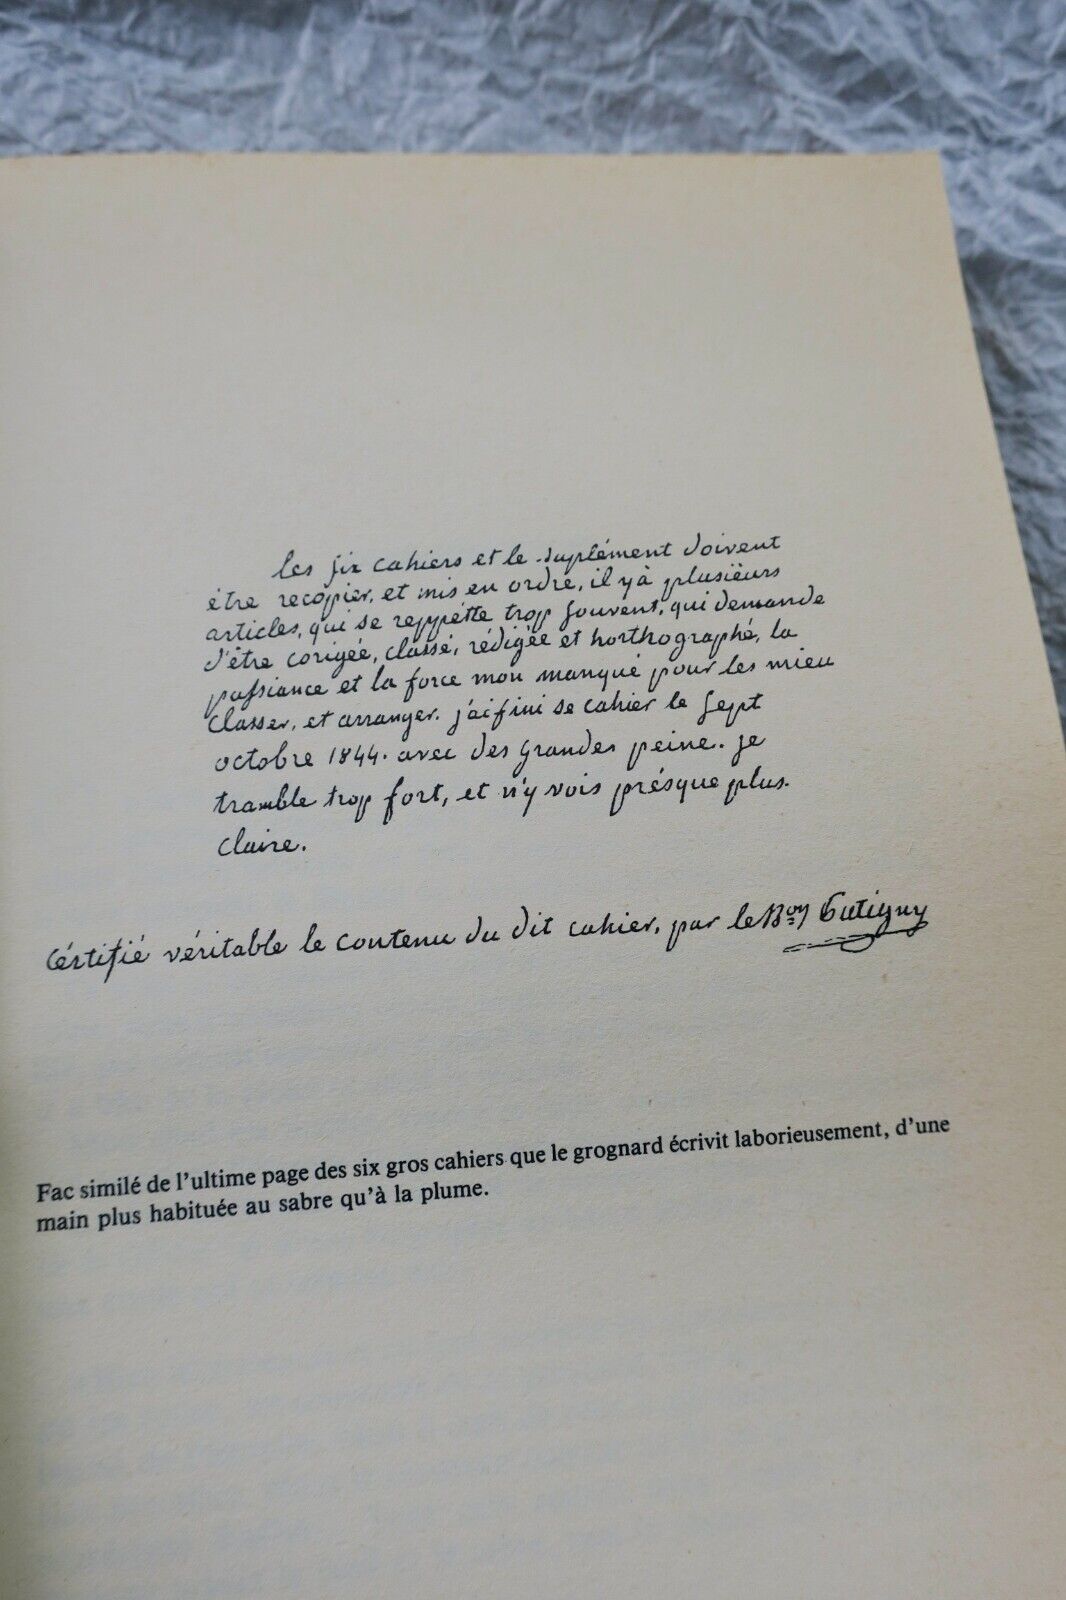 les six cahiers et le suplément doivent
être recopier, et mis en ordre, il y à plusiëurs
articles, qui se reppètte trop souvent, qui demande
d'être corigée, classé, rédigée et horthographé, la
passiance et la force mon manqué pour les mieu
classer, et arranger. j'ai fini se cahier le sept
octobre 1844. avec des grandes peine. je
tramble trop fort, et n'y vois présque plus.
claire.
Cértifié véritable le contenu du dit cahier, par le Bon Putigny
Fac similé de l'ultime page des six gros cahiers que le grognard écrivit laborieusement, d'une
main plus habituée au sabre qu'à la plume.